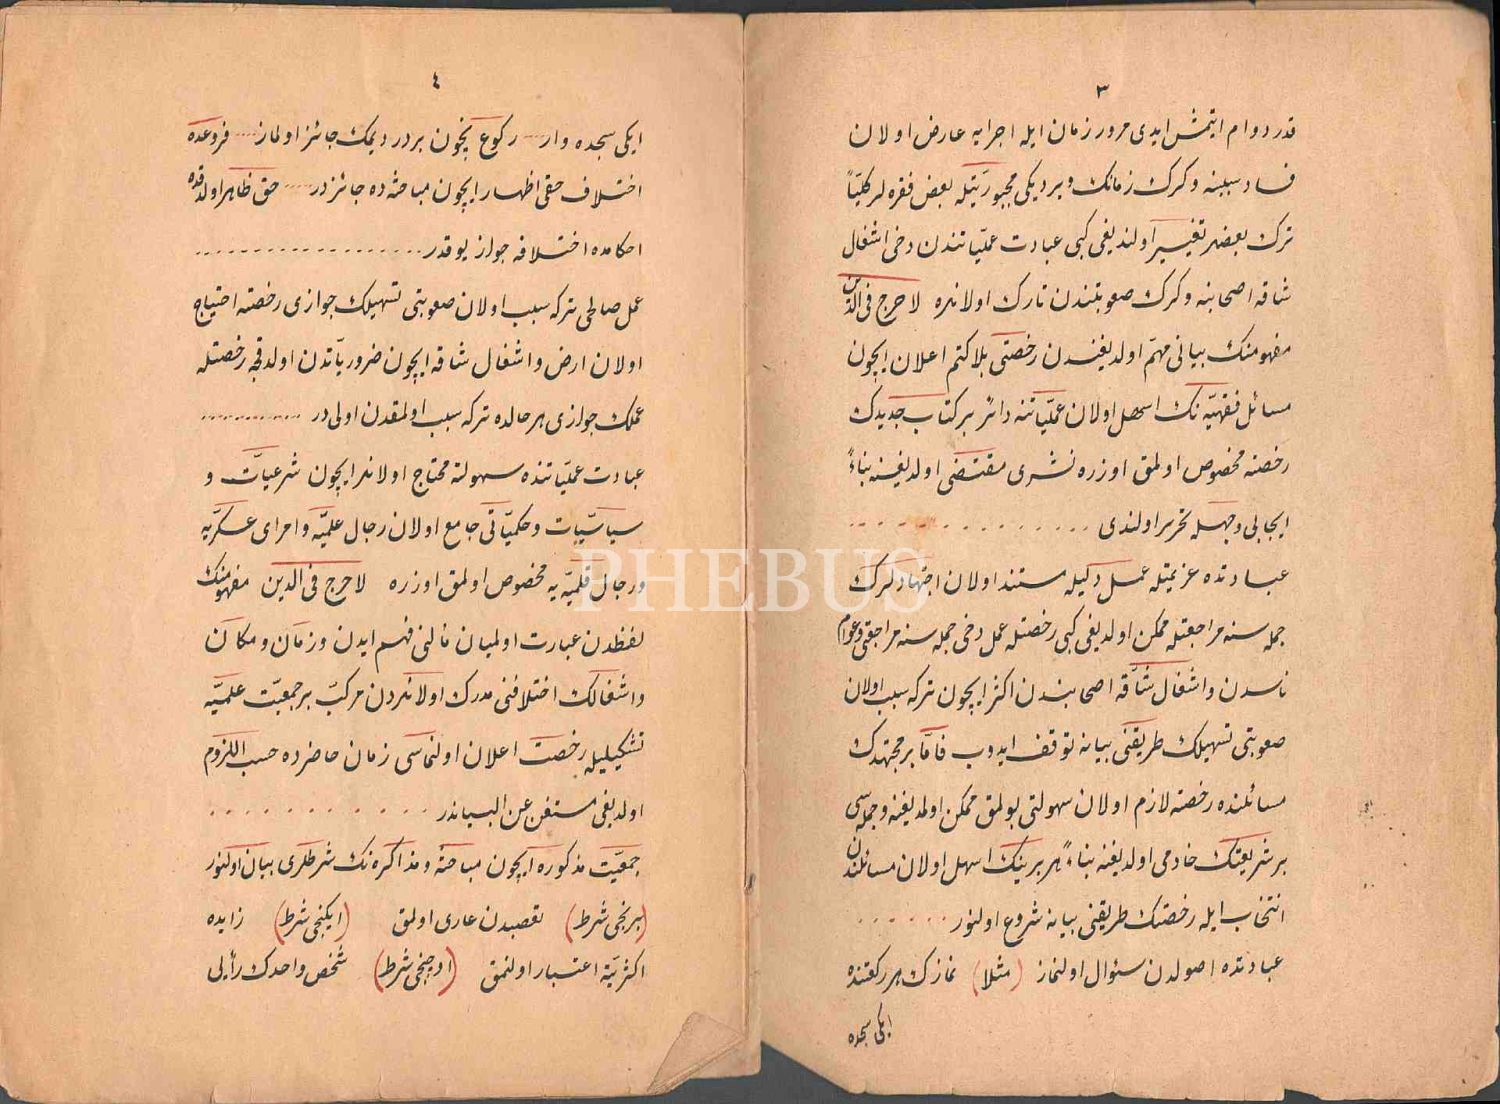 ٣
قدر دوام ايتمش ايدى مرور زمان ايله اجرايه عارض اولان
فساد سببنه وكرك زمانك ويرديكى مجبوريّتله بعض فقره لر كليّاً
ترك بعضلر تغيير اولنديغى كبى عبادت عمليّاتندن دخى اشغال
شاقه اصحابنه وكرك صعوبتندن تارك اولانلره لا حرج فى الدّين
مفهومنك بيانى مهمّ اولديغندن رخصتى بلا كتم اعلان ايچون
مسائل فقهيّه نك اسهل اولان عمليّاتنه دائر بر كتاب جديدك
رخصته مخصوص اولمق اوزره نشرى مقتضى اولديغنه بناءً
ايجابى وجهله تحرير اولندى
عبادتده عزيمتله عمل دليله مستند اولان اجتهادلرك
جمله سنه مراجعتله ممكن اولديغى كبى رخصتله عمل دخى جمله سنه مراجعتى وعوام
ناسدن واشغال شاقّه اصحابندن اكثر ايچون تركه سبب اولان
صعوبتى تسهيلك طريقنى بيانه توقف ايدوب فامّا بر مجتهدك
مسائلنده رخصته لازم اولان سهولتى بولمق ممكن اولمديغنه وجمله سى
بر شريعتك خادمى اولديغنه بناءً هر برينك اسهل اولان مسائلندن
انتخاب ايله رخصتك طريقنى بيانه شروع اولنور
عبادتده اصولدن سئوال اولنماز (مثلا) نمازك هر ركعتنده
ايكى سجده
٤
ايكى سجده وار ركوع نيچون بردر ديمك جائز اولماز فروعده
اختلاف حقى اظهار ايچون مباحثه ده جائزدر حق ظاهر اولدقده
احكامده اختلافه جواز يوقدر
عمل صالحى تركه سبب اولان صعوبتى تسهيلك جوازى رخصته احتياج
اولان ارض واشغال شاقه ايچون ضروريّاتدن اولدقجه رخصتله
عملك جوازى هر حالده تركه سبب اولمقدن اولى در
عبادت عمليّاتنده سهولته محتاج اولانلر ايچون شرعيّات و
سياسيّات وحكميّاتى جامع اولان رجال علميّه وامراى عسكريّه
ورجال قلميّه يه مخصوص اولمق اوزره لا حرج فى الدين مفهومنك
لفظدن عبارت اولميان مالنى فهم ايدن وزمان ومكان
واشغالك اختلافنى مدرك اولانلردن مركبّ بر جمعيّت علميّه
تشكيليله رخصت اعلان اولنماسى زمان حاضرده حسب اللزوم
اولديغى مستغن عن البياندر
جمعيّت مذكوره ايچون مباحثه ومذاكره نك شرطلرى بيان اولنور
(برنجى شرط) تقصبدن عارى اولمق (ايكنجى شرط) زايده
اكثريّته اعتبار اولنمق (اوچنجى شرط) شخص واحدك رأيلى
PHEBUS